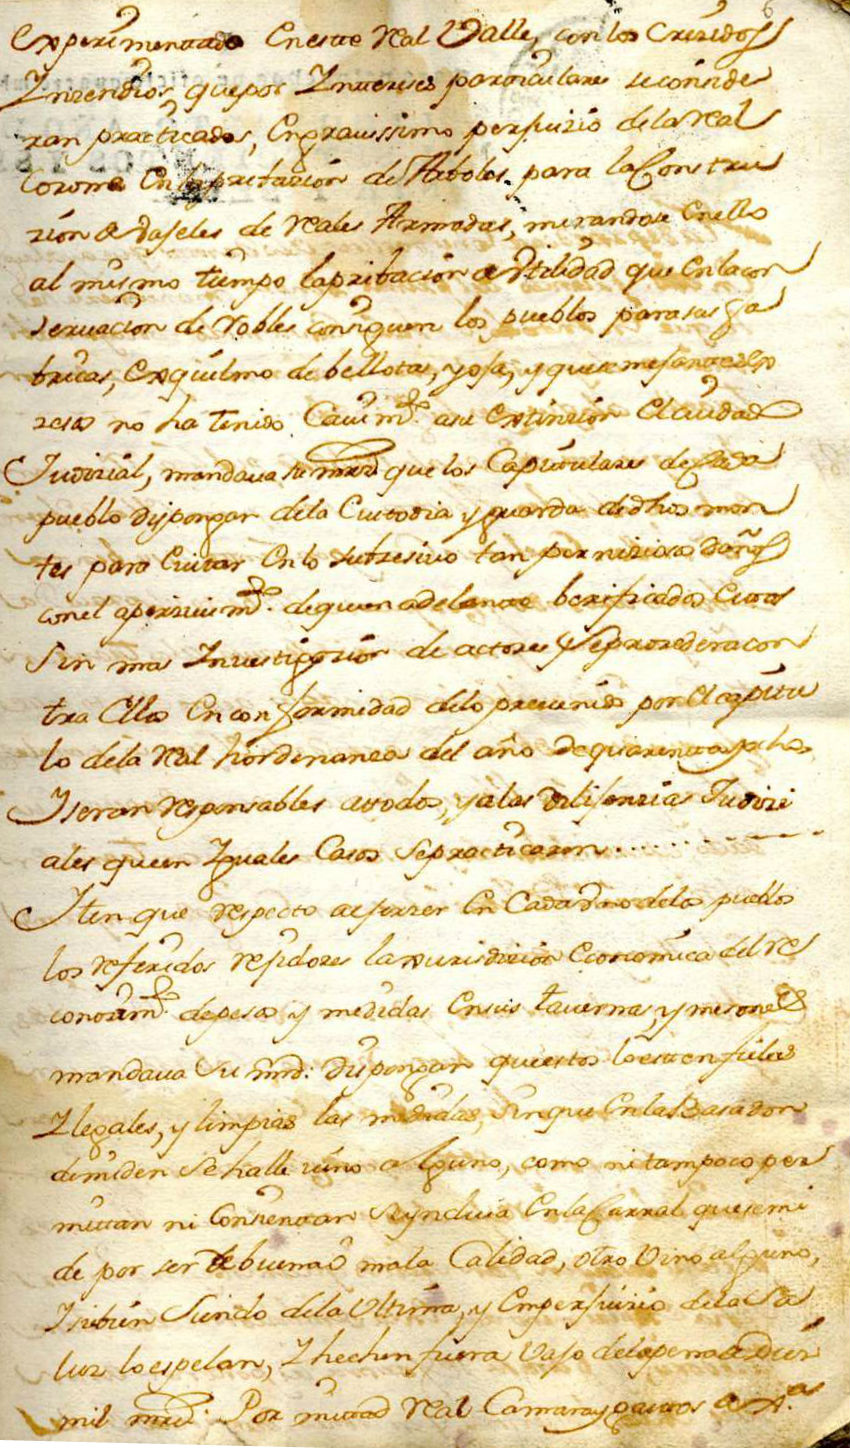 experimentado en este real Valle, con los crezidos
Inzendios, que por Intereses particulares se conside
ran practicados, en gravissimo perjuizio de la real
Corona en la pribazion de Arboles, para la Constru
zion de vaseles de reales Armadas, mirandose en ello
al mismo tiempo la pribacion de Vtilidad que en la con
servacion de robles consiguen los pueblos para sus fa
bricas, exquilmo de bellotas, y oja, y que semejantes ex
zesos no ha tenido cavim.to a su extinzion el cuidado
Judizial, mandava su mrd que los Capitulares de cada
pueblo dispongan de la Custodia y guarda de dhos mon
tes para evitar en lo subzesivo tan perniziosos daños
con el aperzivim.to de que en adelante berificados estos
sin mas Investigazion de actores se prozedera con
tra ellos en conformidad de lo prevenido por el capitu
lo de la real hordenanza del año de quarenta y ocho,
y seran responsables a todos, y a las dilijenzias Judizi
ales que en Yguales Casos se practicaren.
Iten que respecto a ejerzer en cada Vno de los pueblos
los referidos rejidores la xurisdizion economica del re
conozim.to de pesos y medidas en sus tavernas, y mesones
mandava su mrd: dispongan que estos lo esten fieles
Y legales, y limpias las medidas, sin que en la Basa don
de miden se halle vino alguno, como ni tampoco per
mitan ni consientan se yncluia en la Carral que se mi
de por ser de buena o mala Calidad, otro Vino alguno,
Y si bien siendo de la Vltima, y en perjuizio de la Sa
luz lo espelan, Y hechen fuera vajo de la pena de Diez
mil mrs. Por mittad real Camara y gastos de